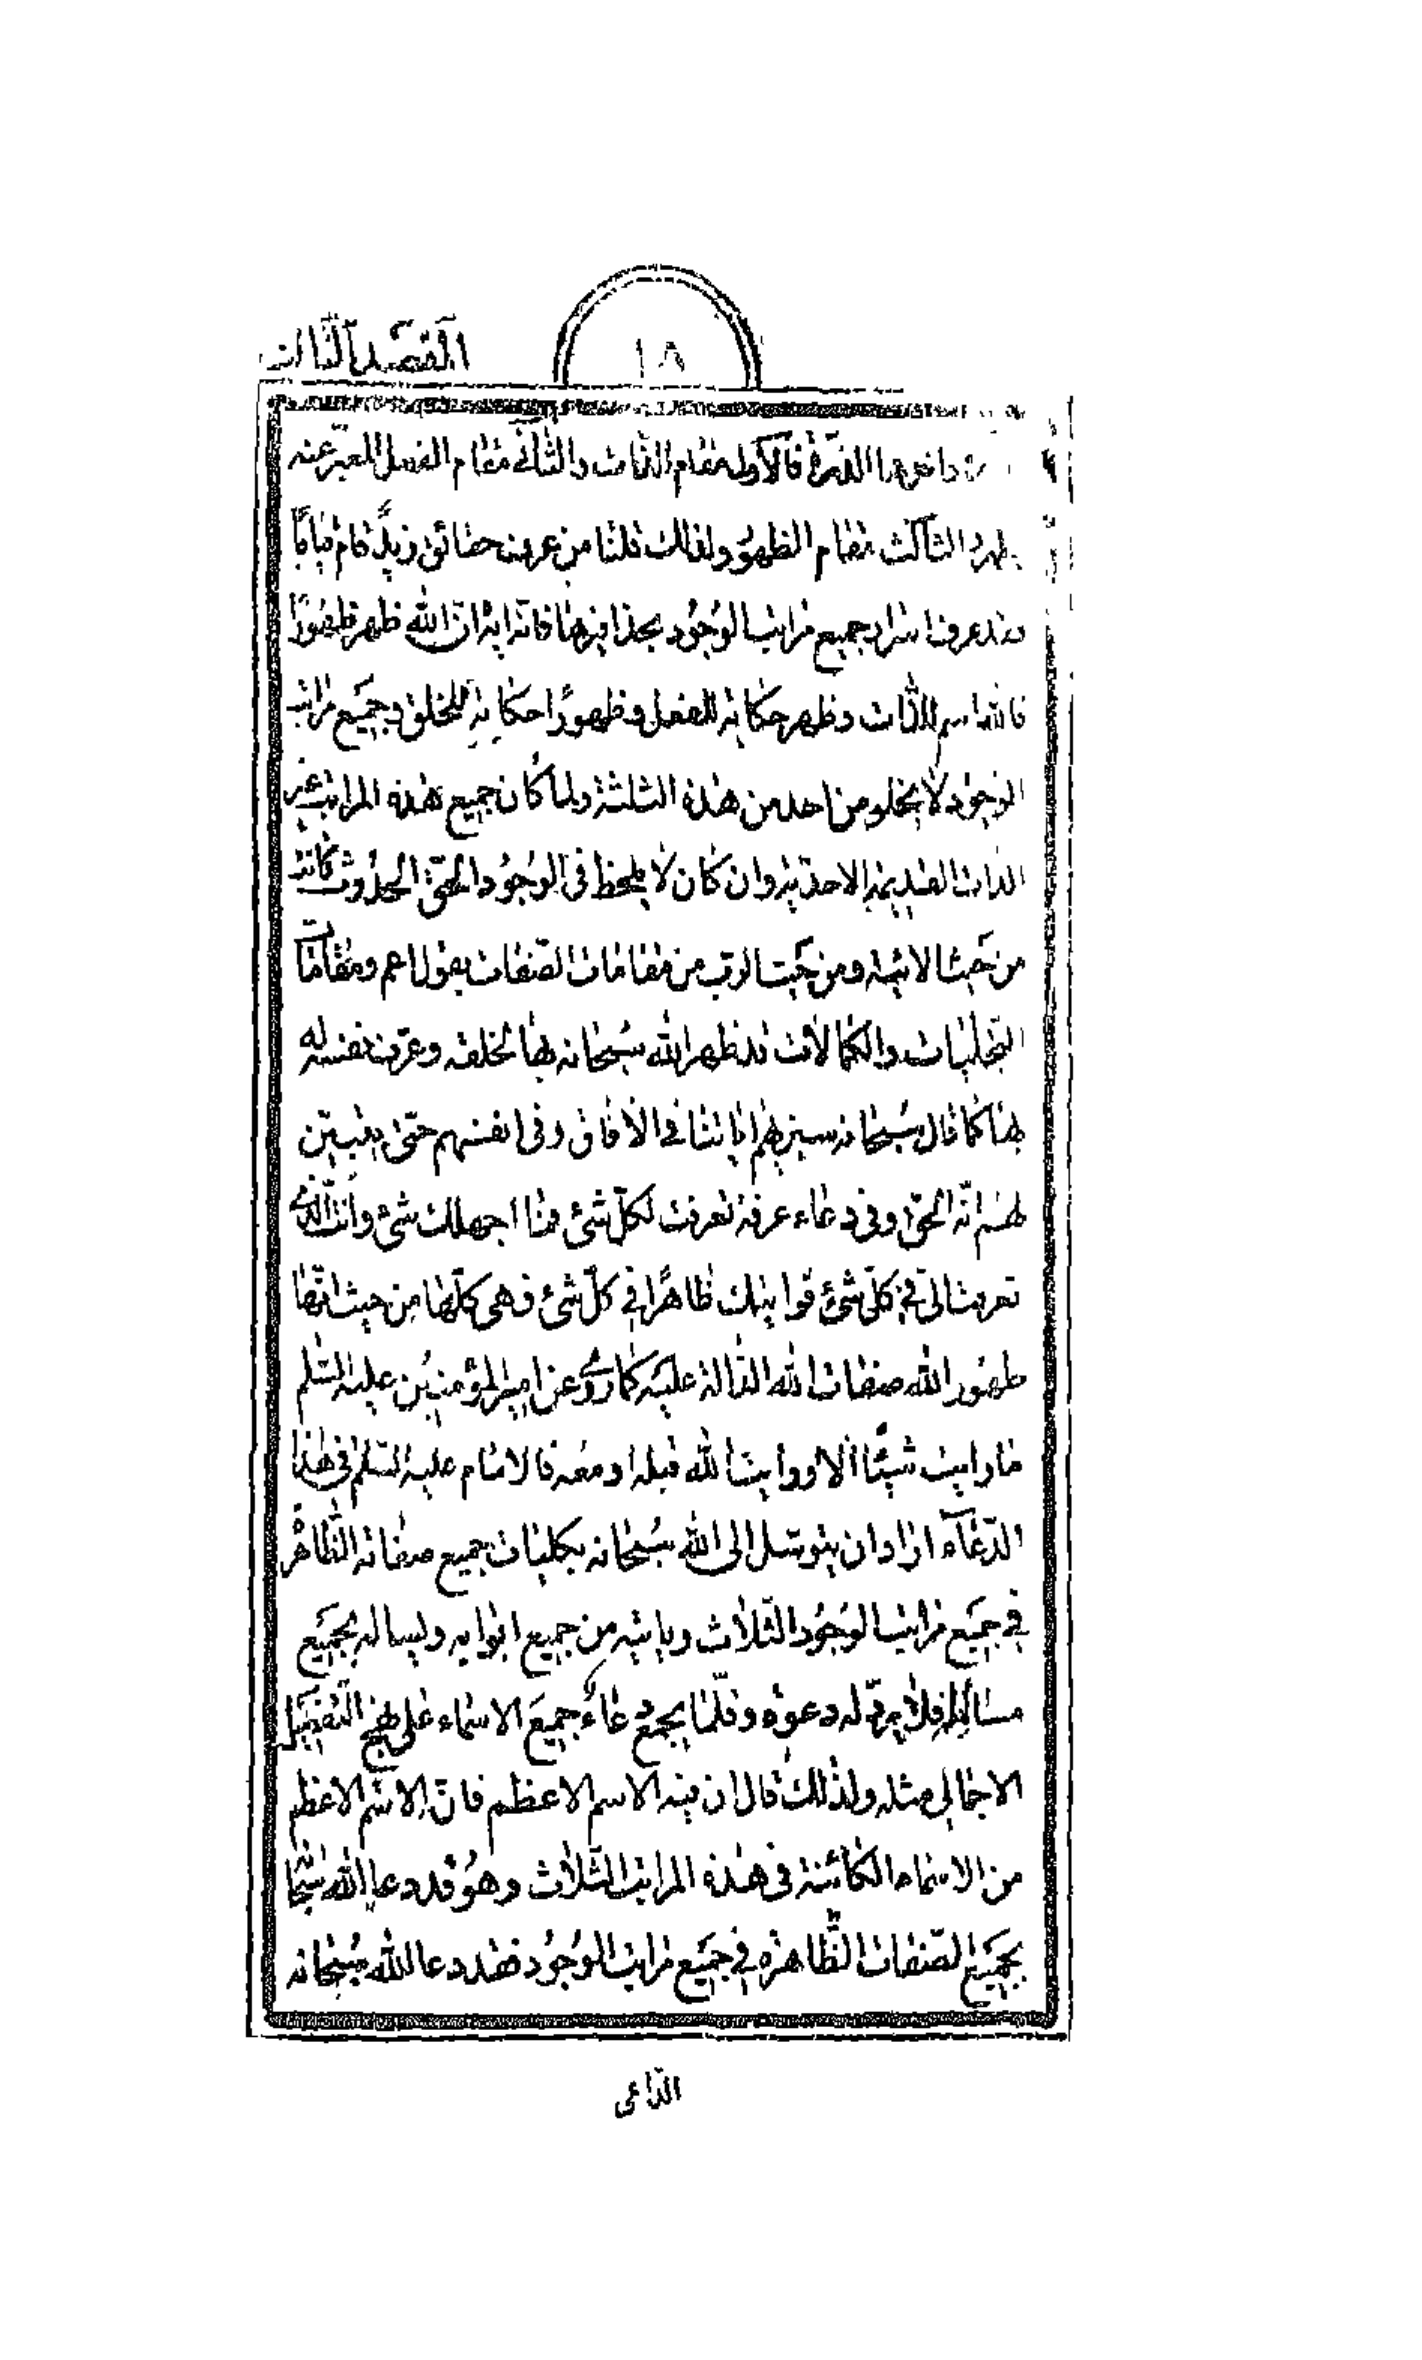 الفصل الثالث
١٨
الذرة فالاولى مقام الذات والثانى مقام الفعل المعبر عنه
الثالث مقام الظهور ولذلك قلنا من عرف حقائق زيدٌ قام قيامًا
فقد عرف اسرار جميع مراتب الوجود بحذافيرها فانه اية ان الله ظهر ظهورًا
فالله اسم للذات وظهر حكاية للفعل وظهورًا حكاية للخلق وجميع مراتب
الوجود لا يخلو من احد من هذه الثلثة ولما كان جميع هذه المراتب غير
الذات القديمة الاحدية وان كان لا يلحظ فى الوجود الحق الحدوث فانه
من حيث الاية ومن حيث الرب من مقامات الصفات بقول اعم ومقامات
التجليات والكمالات قد ظهر الله سبحانه بها لخلقه وعرف نفسه له
بها كما قال سبحانه سنريهم اياتنا فى الافاق وفى انفسهم حتى يتبين
لهم انه الحق وفى دعاء عرفة تعرفت لكل شئ فما اجهلك شئ وانت الذى
تعرفت الى فى كل شئ فرايتك ظاهرًا فى كل شئ فهى كلها من حيث انها
ظهور الله صفات الله الدالة عليه كما روى عن امير المؤمنين عليه السلم
ما رايت شيئًا الا ورايت الله قبله او معه فالامام عليه السلم فى هذا
الدعاء اراد ان يتوسل الى الله سبحانه بكليات جميع صفاته الظاهر
فى جميع مراتب الوجود الثلاث وياتيه من جميع ابوابه ويساله بجميع
مسائله فلا يرد له دعوة وقلما يجمع دعاء جميع الاسماء على نهج التفصيل
الاجمالى مثله ولذلك قال ان فيه الاسم الاعظم فان الاسم الاعظم
من الاسماء الكائنة فى هذه المراتب الثلاث وهو قد دعا الله سبحا
بجميع الصفات الظاهرة فى جميع مراتب الوجود فقد دعا الله سبحانه
الداعى